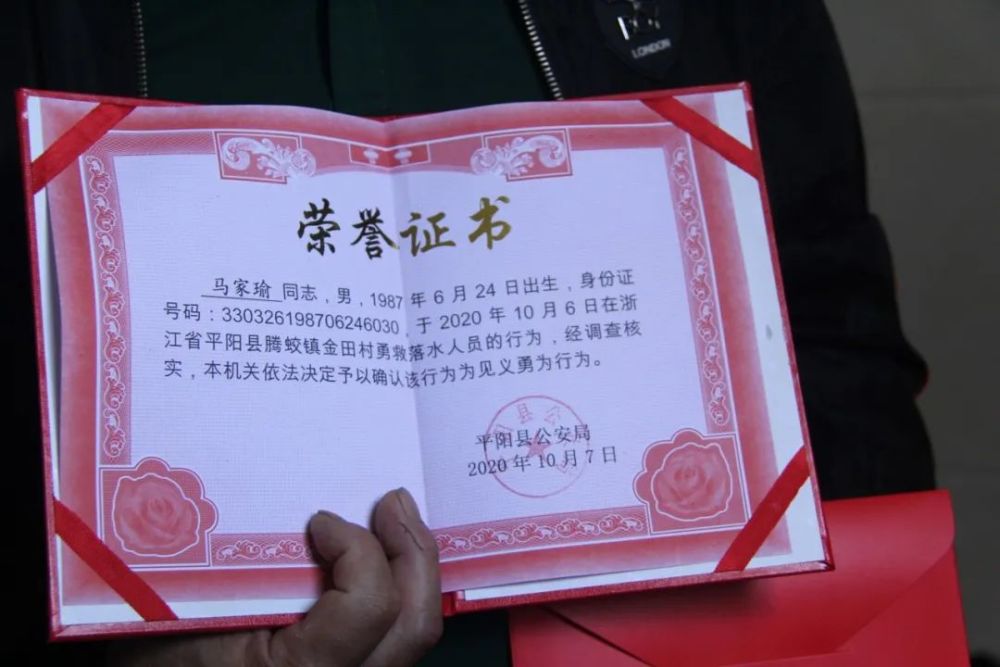 LONDON
荣誉证书
马家瑜 同志，男，1987 年 6 月 24 日出生，身份证
号码：330326198706246030，于 2020 年 10 月 6 日在浙
江省平阳县腾蛟镇金田村勇救落水人员的行为，经调查核
实，本机关依法决定予以确认该行为为见义勇为行为。
平阳县公安局
2020 年 10 月 7 日